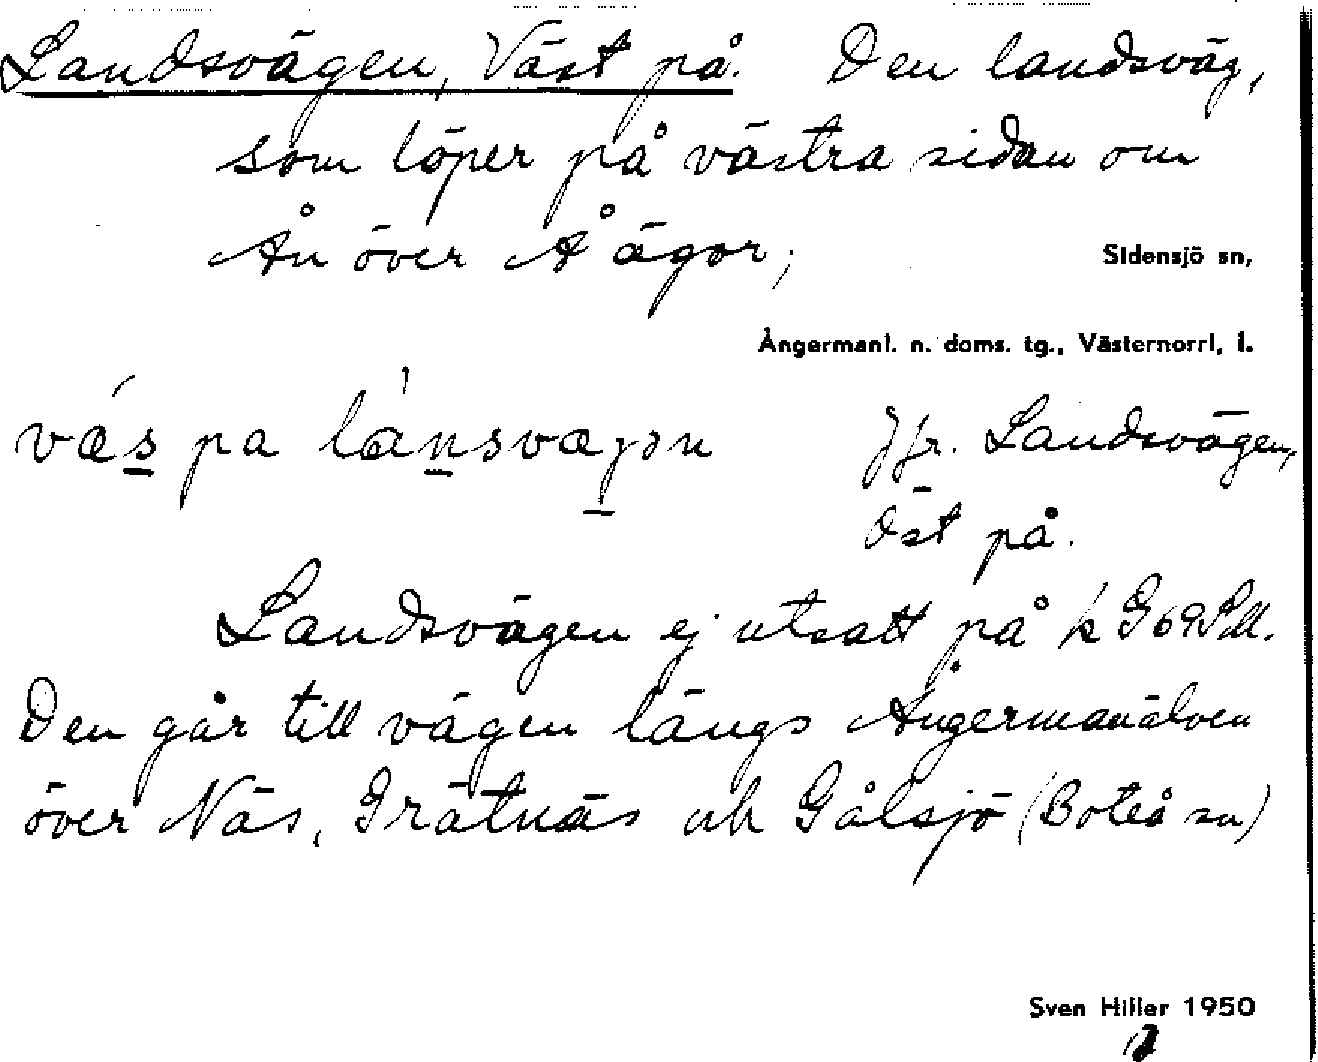 Landsvägen, Väst på. Den landsväg,
som löper på västra sidan om
Ån över Å ägor;
Sidensjö sn,
Ångermanl. n. doms. tg., Västernorrl. l.
Jfr. Landsvägen,
Öst på.
Landsvägen ej utsatt på k G69
Den går till vägen längs Ångermanälven
över Näs, Grätnäs och Gålsjö (Boteå sn)
Sven Hiller 1950